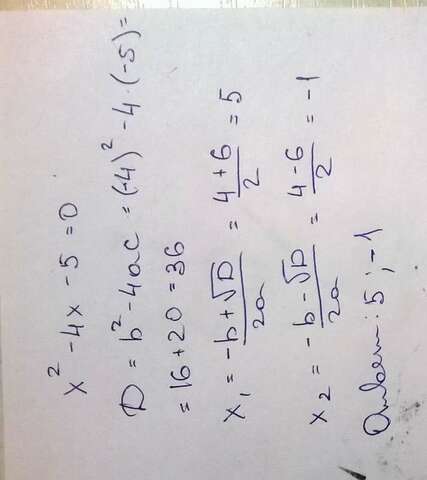 x² - 4x - 5 = 0
D = b² - 4ac = (-4)² - 4 · (-5) =
= 16 + 20 = 36
x₁ = (-b + √D)/2a = (4 + 6)/2 = 5
x₂ = (-b - √D)/2a = (4 - 6)/2 = -1
Ответ: 5 ; -1